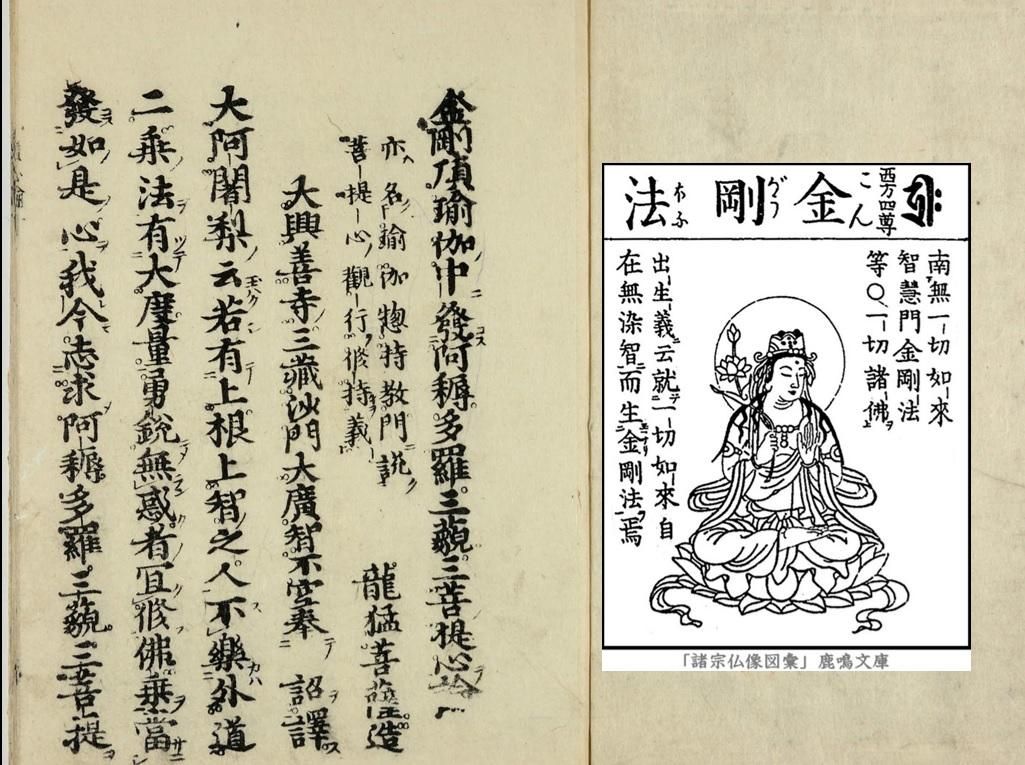 西方四尊
金剛法
こん がう ほふ
南無一切如來
智慧門金剛法
等〇一切諸佛
出生義云就一切如來自
在無染智而生金剛法焉
「諸宗仏像図彙」鹿鳴文庫
金剛頂瑜伽中發阿耨多羅三藐三菩提心論
亦名瑜伽惣持教門説
菩提心觀行修持義
龍猛菩薩造
大興善寺三藏沙門大廣智不空奉 詔譯
大阿闍梨云若有上根上智之人不樂外道
二乘法有大度量勇銳無惑者宜修佛乘當
發如是心我今志求阿耨多羅三藐三菩提